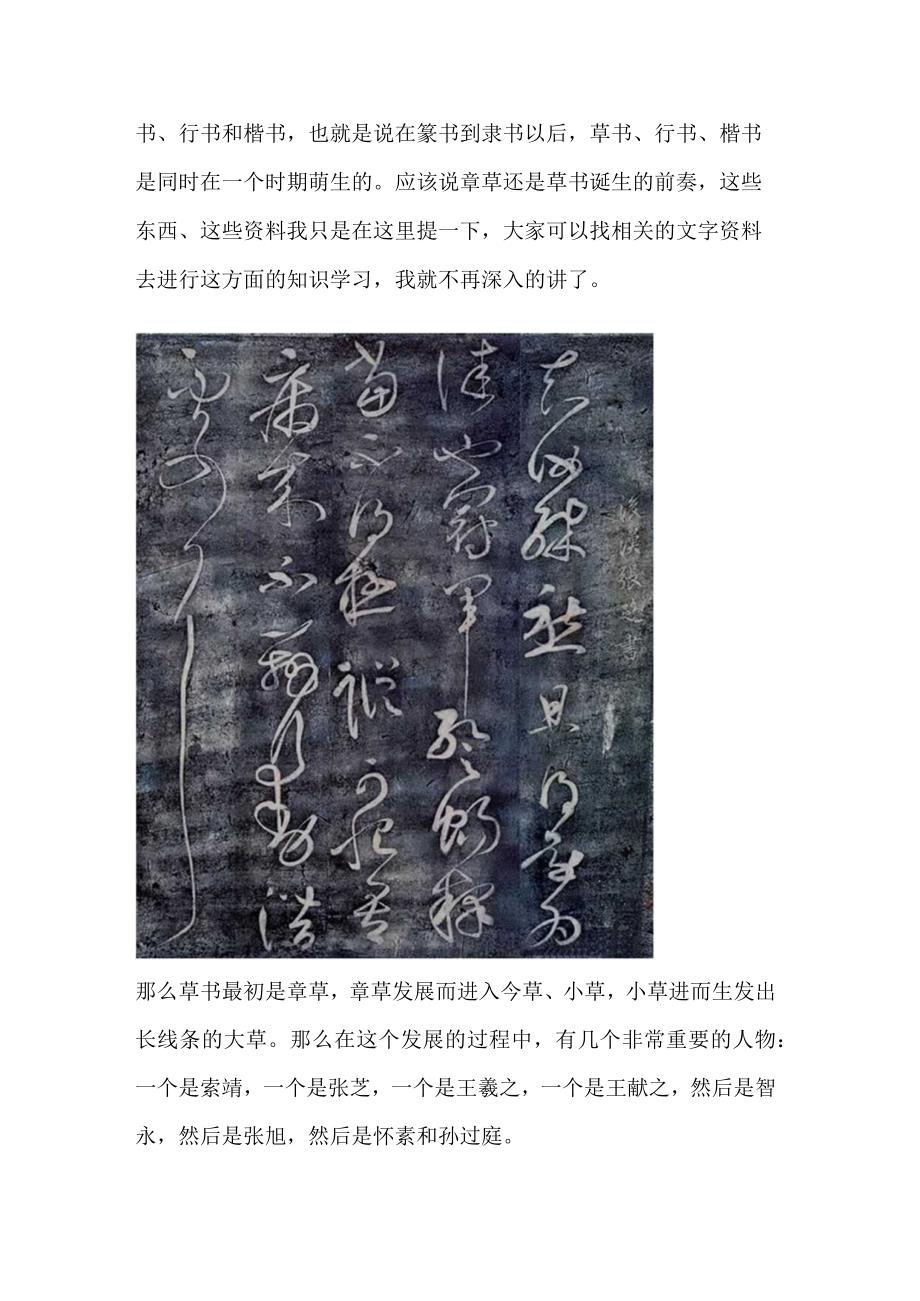 书、行书和楷书，也就是说在篆书到隶书以后，草书、行书、楷书
是同时在一个时期萌生的。应该说章草还是草书诞生的前奏，这些
东西、这些资料我只是在这里提一下，大家可以找相关的文字资料
去进行这方面的知识学习，我就不再深入的讲了。
後漢張芝書
知汝殊愁且得還為
佳也冠軍暫暢釋
當不得極蹤可恨吾
病來不辦行動潛
不可耳
那么草书最初是章草，章草发展而进入今草、小草，小草进而生发出
长线条的大草。那么在这个发展的过程中，有几个非常重要的人物：
一个是索靖，一个是张芝，一个是王羲之，一个是王献之，然后是智
永，然后是张旭，然后是怀素和孙过庭。